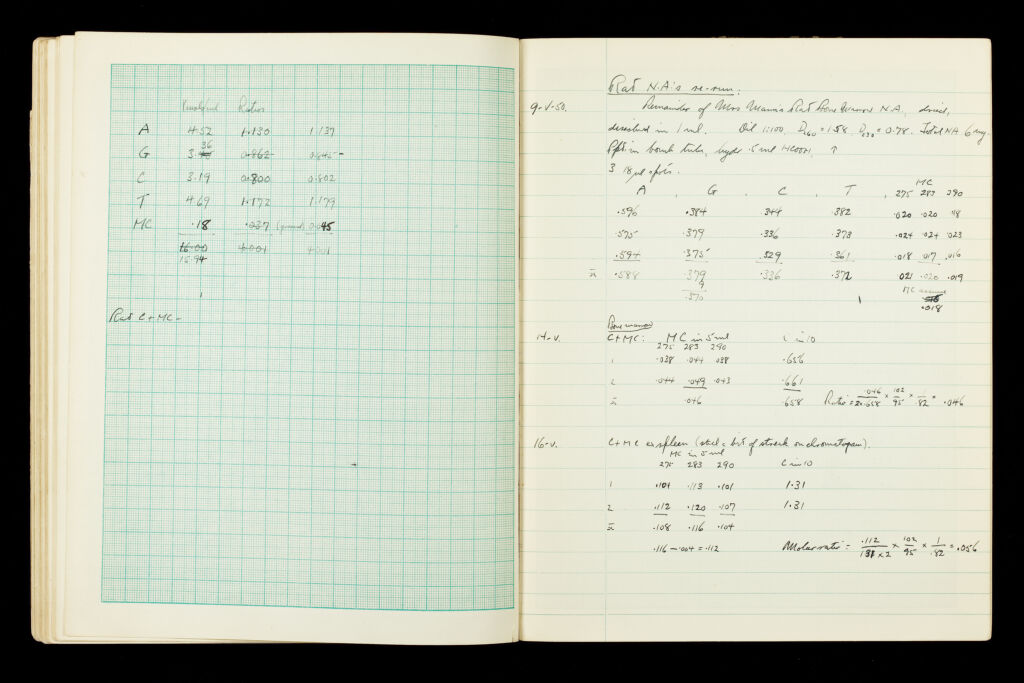 Ratios
A 4.52 1.130 1.137
G 3.36 0.862 0.845
C 3.19 0.800 0.802
T 4.69 1.172 1.179
MC .18 .037 0.045
16.00 4.001 4.001
15.94
Rat C + MC -
Rat N.A's re-run:
9-V-50. Remainder of Mrs Mannis Rat Bone Marrow N.A., dried,
dissolved in 1 ml. Dil 1:100, D260 = 1.58 D230 = 0.78. Total NA 6 mg.
in bomb tube, hydr .5 ml HCOOH,
3 18 µl spots.
MC
A, G, C, T, 275 283 290
.596 .384 .344 .382 .020 .020 .018
.575 .379 .336 .373 .024 .024 .023
.594 .375 .329 .361 .018 .017 .016
.588 .379 .336 .372 .021 .020 .019
.370 MC assume
.018
Bone marrow
14-V. C+MC: MC in 5 ml C in 10
275 283 290
1 .038 .044 .038 .656
2 .044 .049 .043 .661
.046 .658 Ratio = .046/2×.658 × 102/95 × 1/.82 = .046
16-V. C+MC ex spleen (skel = bit of streak on chromatogram).
MC in 5 ml
275 283 290 C in 10
1 .104 .113 .101 1.31
2 .112 .120 .107 1.31
.108 .116 .104
.116 - .004 = .112 Molar ratio = .112/131 × 2 × 102/95 × 1/.82 = .056